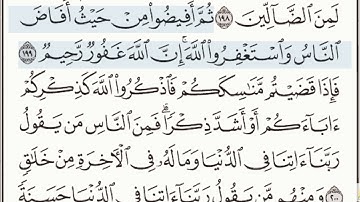 لَمِنَ ٱلضَّآلِّينَ ١٩٨ ثُمَّ أَفِيضُوا۟ مِنْ حَيْثُ أَفَاضَ
ٱلنَّاسُ وَٱسْتَغْفِرُوا۟ ٱللَّهَ ۚ إِنَّ ٱللَّهَ غَفُورٌ رَّحِيمٌ ١٩٩
فَإِذَا قَضَيْتُم مَّنَٰسِكَكُمْ فَٱذْكُرُوا۟ ٱللَّهَ كَذِكْرِكُمْ
ءَابَآءَكُمْ أَوْ أَشَدَّ ذِكْرًا ۗ فَمِنَ ٱلنَّاسِ مَن يَقُولُ
رَبَّنَآ ءَاتِنَا فِى ٱلدُّنْيَا وَمَا لَهُۥ فِى ٱلْءَاخِرَةِ مِنْ خَلَٰقٍ
٢٠٠ وَمِنْهُم مَّن يَقُولُ رَبَّنَآ ءَاتِنَا فِى ٱلدُّنْيَا حَسَنَةً